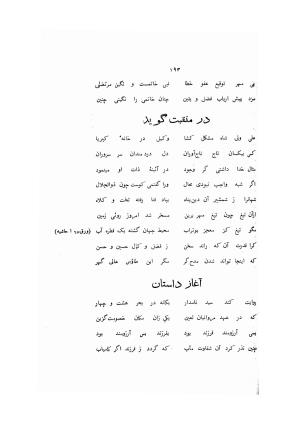 ۱۹۳
نبی خاتمست و نگین مرتضی پی مهر توقیع عفو خطا
چنان خاتمی را نگینی چنین مزد پیش ارباب فضل و یقین
در منقبت گوید
علی ولی شاه مشکل گشا وکیل در خانهٔ کبریا
کس بیکسان تاج تاج‌آوران دل دردمندان سر سروران
مثال خدا داشتی گر وجود در آئینهٔ ذات او مینمود
اگر شبه واجب نبودی محال ورا گفتمی کیست چون ذوالجلال
شهانرا ز شمشیر آن دین‌پناه بباد فنا رفته تخت و کلاه
ازآن تیغ چون تیغ مهر برین مسخر شد امروز روئی زمین
مگو تیغ کز معجز بوتراب محیط جهان گشته یک قطره آب (ورق ۱ حاشیه)
کرا قدرت آن که راند سخن ز فضل و کمال حسین و حسن
که اینجا تواند شدن مدح‌گر مگر این طاقوی عالی گهر
آغاز داستان
روایت کند سید نامدار یگانه در بحر هشت و چهار
که در عهد میروانیان لعین یکی زان سگان خصومت‌گزین
بسی آرزومند فرزند بود بفرزند بس آرزومند بود
چنین نذر کرد آن شقاوت مآب که گردد ز فرزند اگر کامیاب